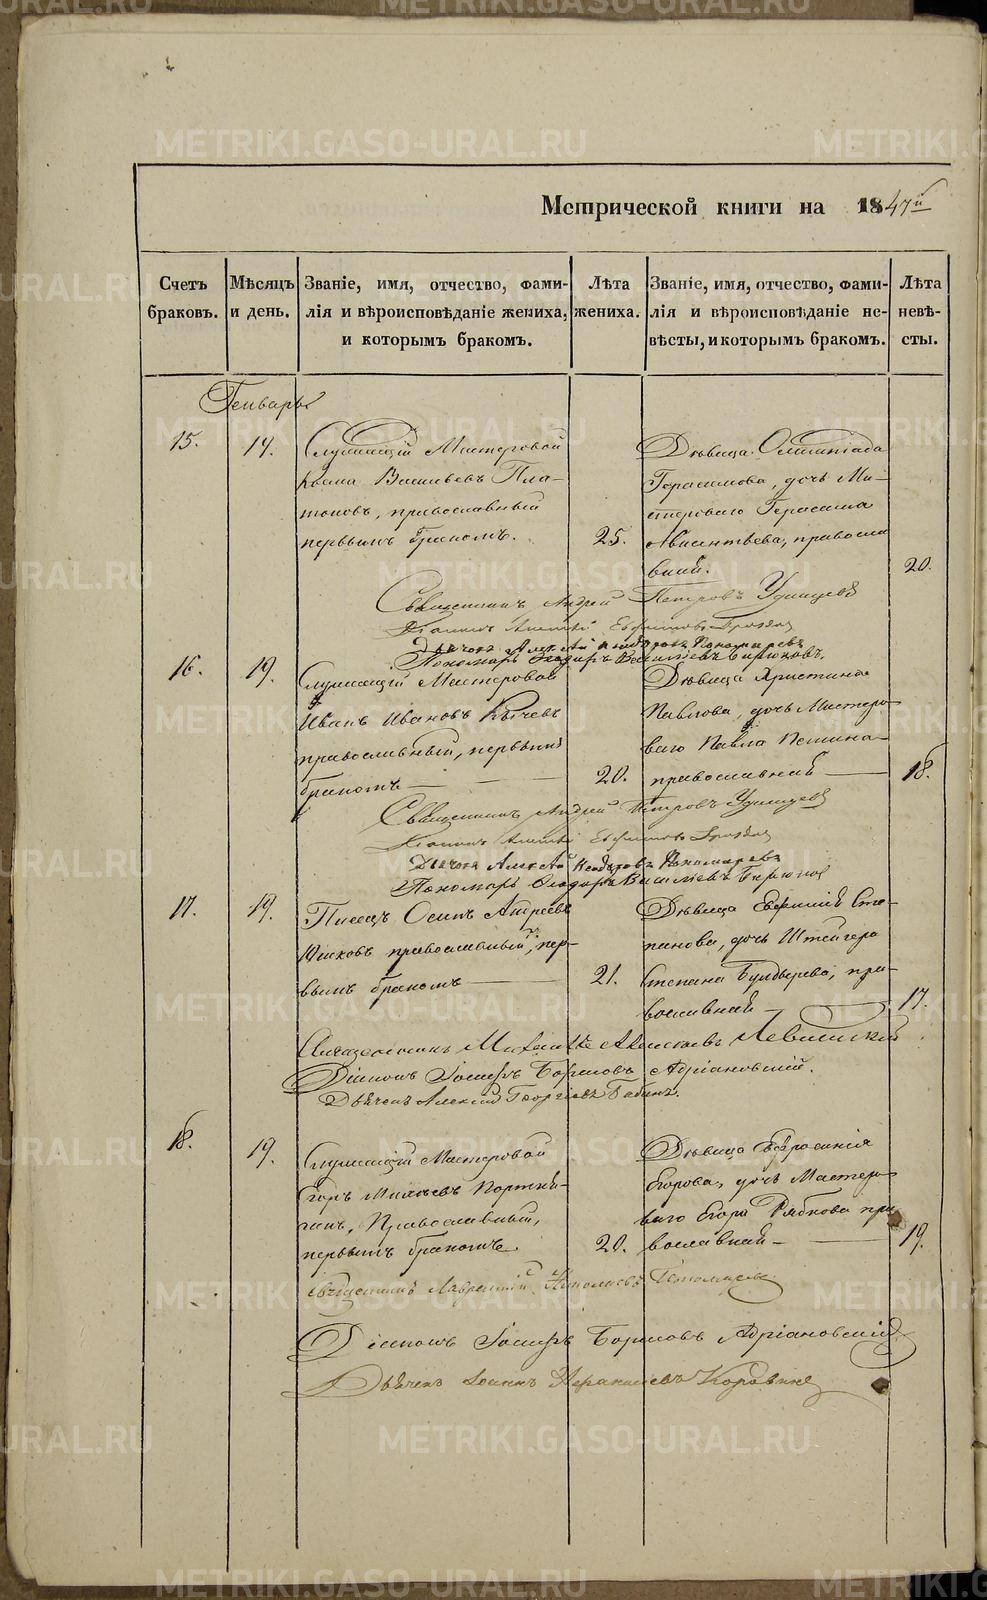 Метрической книги на 1847й
Счетъ браковъ.
Мѣсяцъ и день.
Званіе, имя, отчество, фами-
лія и вѣроисповѣданіе жениха,
и которымъ бракомъ.
Лѣта жениха.
Званіе, имя, отчество, фами-
лія и вѣроисповѣданіе не-
вѣсты, и которымъ бракомъ.
Лѣта невѣ-
сты.
Генварь
15.
14.
Служащій Мастеровой
Косма Васильевъ Пла-
тоновъ, православный
первымъ бракомъ.
25.
Дѣвица Олимпіада
Герасимова, дочь Ма-
стероваго Герасима
православ
ная.
20.
Священникъ Андрей Петровъ Удинцевъ
Діаконъ Алексій
Дьячокъ Алексѣй Пономаревъ
Пономарь Ѳеодоръ Васильевъ Бирюковъ.
16.
19.
Служащій Мастеровой
Иванъ Ивановъ
православный, первымъ
бракомъ
20.
Дѣвица Христина
Павлова, дочь Мастеро-
ваго Павла
православная
18.
Священникъ Андрей Петровъ Удинцевъ
Діаконъ Алексій
Дьячокъ Алексѣй Пономаревъ
Пономарь Ѳеодоръ Васильевъ Бирюковъ
17.
19.
Писецъ Осипъ Андреевъ
Юшковъ православный, пер-
вымъ бракомъ
21.
Дѣвица Евфимія Сте-
панова, дочь Штейгера
Степана пра-
вославная
17.
Священникъ Михаилъ Алексѣевъ Левитскій
Діаконъ Іосифъ Борисовъ Адріановскій.
Дьячекъ Алексій Георгіевъ Бабинъ.
18.
19.
Служащій Мастеровой
Егоръ
Православный,
первымъ бракомъ.
20.
Дѣвица Евфросинія
Егорова, дочь Мастеро-
ваго Егора Рябкова пра
вославная
19.
Священникъ Лаврентій
Діаконъ Іосифъ Борисовъ Адріановскій
Дьячекъ Іоаннъ Коровинъ
METRIKI.GASO-URAL.RU